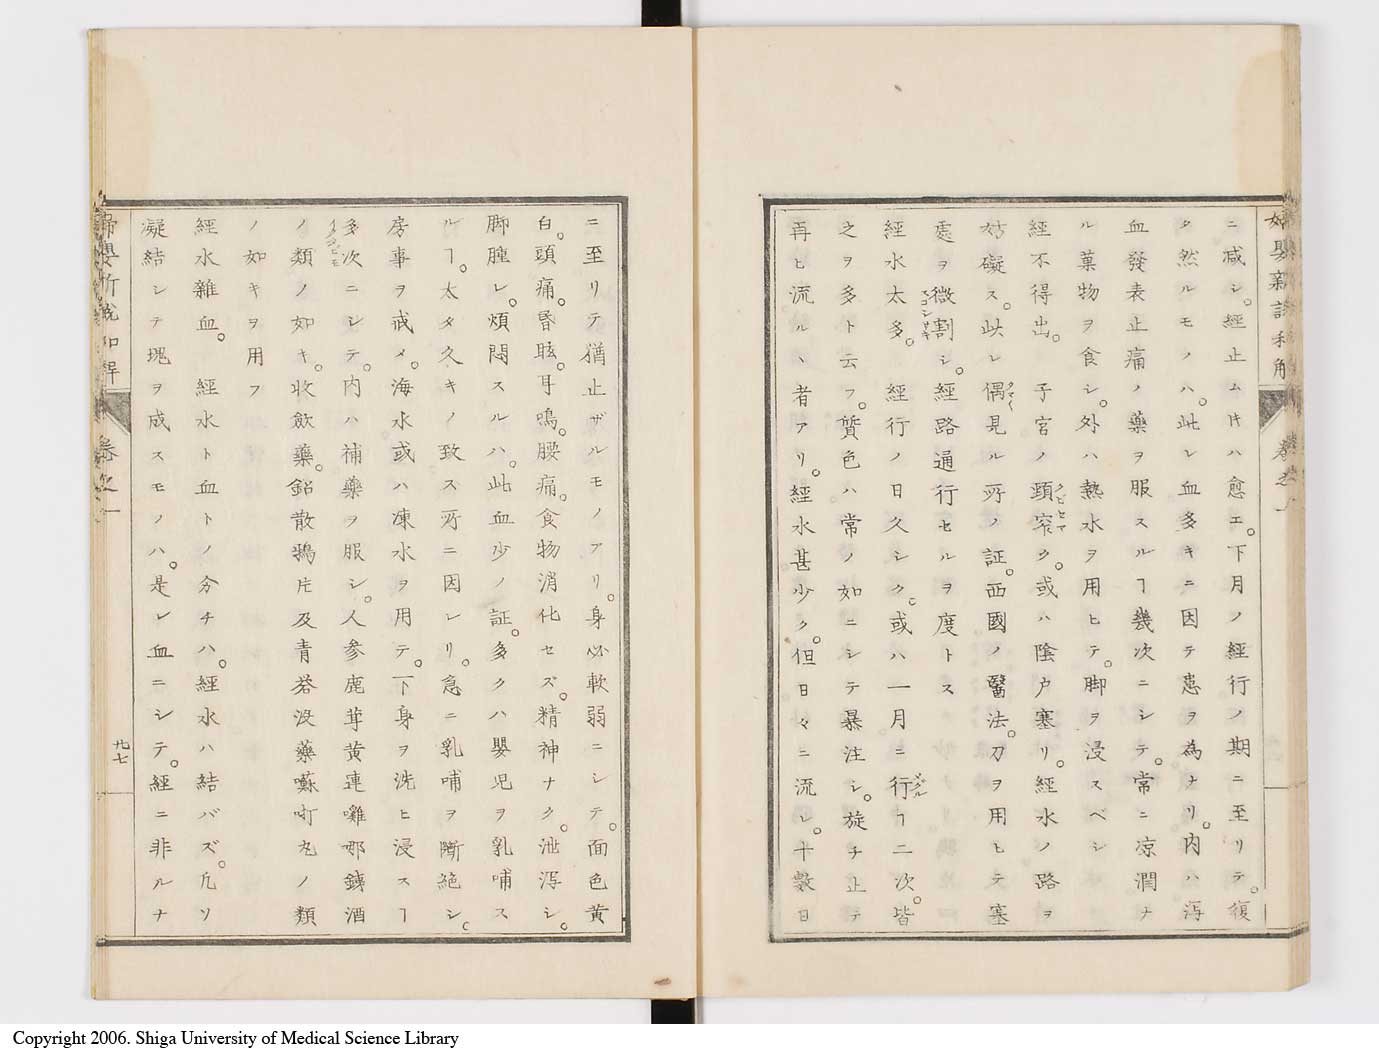 婦嬰新説和解 卷之一
ニ减シ。經止ムㇳキハ愈エ。下月ノ經行ノ期ニ至リテ。復
タ然ルモノハ。此レ血多キニ因テ患ヲ為ナリ。内ハ瀉
血發表止痛ノ藥ヲ服スルヿ幾次ニシテ。常ニ凉潤ナ
ル菓物ヲ食シ。外ハ熱水ヲ用ヒテ。脚ヲ浸スベシ
經不得出。 子宮ノ頸窄ク。或ハ陰户塞リ。經水ノ路ヲ
妨礙ス。此レ偶見ル所ノ証。西國ノ醫法。刀ヲ用ヒテ塞
處ヲ微割シ。經路通行セルヲ度トス
經水太多。 經行ノ日久シク。或ハ一月ニ行ヿ二次。皆
之ヲ多ト云フ。質色ハ常ノ如ニシテ暴注シ。旋チ止テ
再ヒ流ルヽ者アリ。經水甚少ク。但日々ニ流レ。十數日
ニ至リテ猶止ザルモノアリ。身必軟弱ニシテ。面色黄
白。頭痛。昏眩。耳鳴。腰痛。食物消化セズ。精神ナク。泄瀉シ。
脚腫レ。煩悶スルハ。此血少ノ証。多クハ嬰児ヲ乳哺ス
ルヿ。太タ久キノ致ス所ニ因レリ。急ニ乳哺ヲ斷絶シ。
房事ヲ戒メ。海水或ハ凍水ヲ用テ。下身ヲ洗ヒ浸スヿ
多次ニシテ。内ハ補藥ヲ服シ。人參鹿茸黄連囃哪銕酒
ノ類ノ如キ。收歛藥。鉛散鴉片及青礬没藥囌叮丸ノ類
ノ如キヲ用フ
經水雜血。 經水ト血トノ分チハ。經水ハ結バズ。凡ソ
凝結シテ瑰ヲ成スモノハ。是レ血ニシテ。經ニ非ルナ
婦嬰新説和解 卷之一 九七